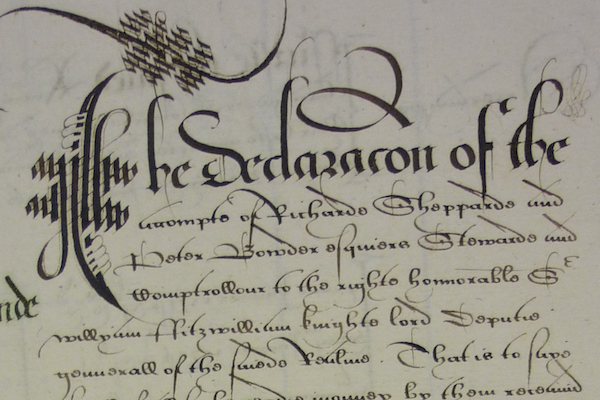 The Declaracon of the
accompte of Richarde Shepparde and
Peter Bowder esquiers Stewarde and
Comptrollour to the righte honnorable Sr
willyam ffitzwilliam knighte lord Deputie
gennerall of the saiede Realme. That is to saye
by them receaued